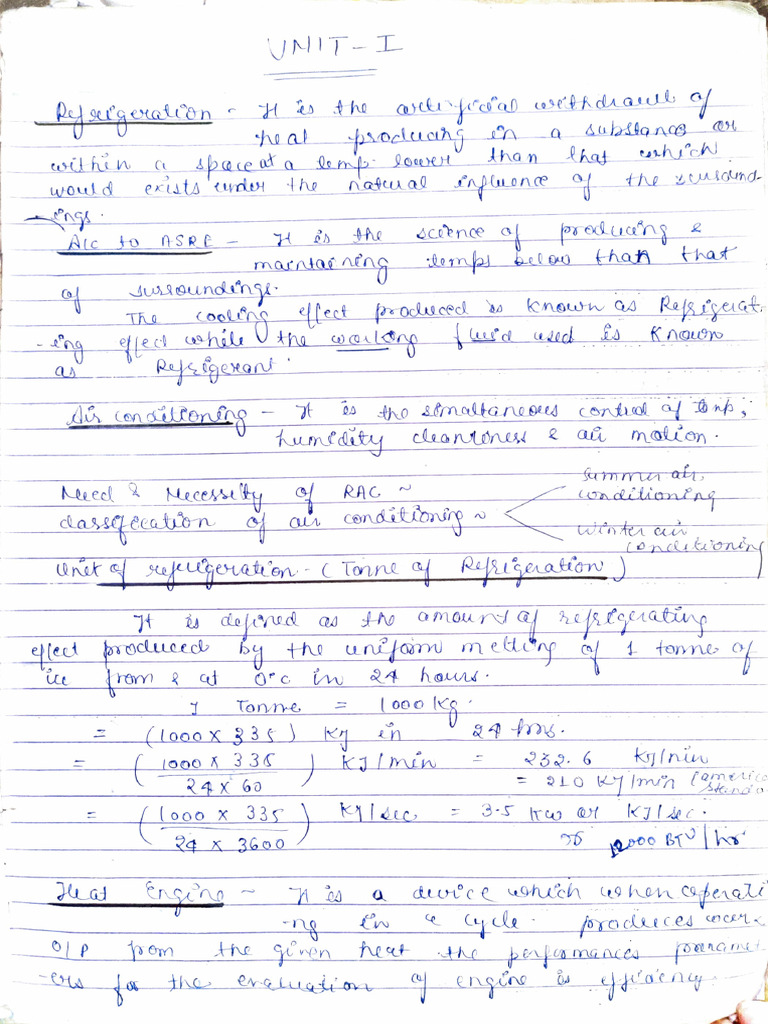 UNIT-I
Refrigeration - It is the artificial withdrawl of
heat producing in a substance or
within a space at a temp. lower than that which
would exists under the natural influence of the surround-
-ings.
A/c to ASRE - It is the science of producing &
maintaining temps below than that
of surroundings.
The cooling effect produced is known as Refrigerat-
-ing effect while the working fluid used is known
as Refrigerant.
Air conditioning - It is the simultaneous control of temp,
humidity cleanliness & air motion.
Need & Necessity of RAC ~
classification of air conditioning ~
summer air
conditioning
winter air
conditioning
Unit of refrigeration - (Tonne of Refrigeration)
It is defined as the amount of refrigerating
effect produced by the uniform melting of 1 tonne of
ice from & at 0°c in 24 hours.
1 Tonne = 1000 kg.
= (1000 x 335) KJ in 24 hrs.
= (1000 x 335 / 24 x 60) KJ/min = 232.6 KJ/min
= 210 KJ/min (america standa
= (1000 x 335 / 24 x 3600) KJ/sec = 3.5 KW or KJ/sec.
or 12000 BTU/hr
Heat Engine - It is a device which when operati
-ng in a cycle produces work
O/P from the given heat the performances paramet-
-ers for the evaluation of engine is efficiency.